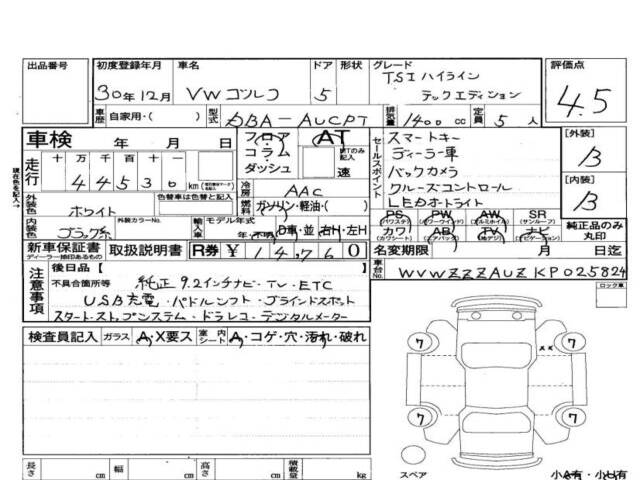 出品番号 初度登録年月 車名 ドア 形状 グレード 評価点
30年12月 VW ゴルフ 5 TSI ハイライン
テックエディション 4.5
車歴 自家用・( ) 型式 DBA-AUCPT 排気量 1400 cc 定員 5 人
車検 年 月 日 フロア・コラム・ダッシュ AT MTのみ記入 速
セールスポイント
スマートキー
ディーラー車
バックカメラ
クルーズコントロール
LEDオートライト
[外装] B
[内装] B
走行 十 万 千 百 十 一
4 4 5 3 0 km
現在色を記入→
外装色 ホワイト 色替車は色替と記入
冷房 AAC
燃料 ガソリン・軽油・( )
内装色 ブラック系 外装カラーNo. 輸入車 モデル年式 年・不明 D車・並 右H・左H
PS (パワステ) PW (パワーウインド) AW (アルミホイル) SR (サンルーフ)
カワ (カワシート) AB (エアバッグ) TV (地デジ) ナビ (ナビゲーション)
純正品のみ丸印
新車保証書 ディーラー捺印あるもの 取扱説明書 R券 ¥ 14,760
名変期限 月 日迄
車台No. WVWZZZAUZKP025824
注意事項 後日品 [ ]
不具合箇所等 純正9.2インチナビ・TV・ETC
USB充電・パドルシフト・ブラインドスポット
スタート・ストップシステム・ドラレコ・デジタルメーター
ロック車
検査員記入 ガラス A・X要ス 室内 シート A・コゲ・穴・汚れ・破れ
7 7
7 7
スペア
長さ cm 幅 cm 高さ cm 積載量 kg
小A有・小U有